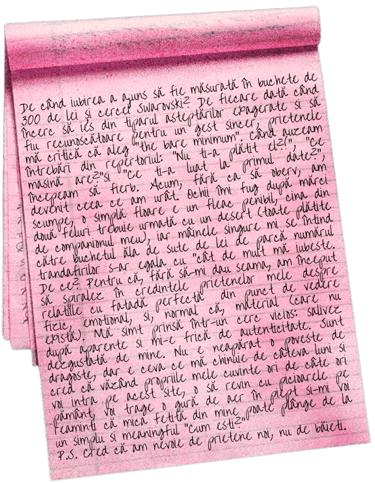 De când iubirea a ajuns să fie măsurată în buchete de
300 de lei și cercei Swarovski? De fiecare dată când
încerc să ies din tiparul așteptărilor exagerate și să
fiu recunoscătoare pentru un gest sincer, prietenele
mă critică că aleg "the bare minimum". Când auzeam
întrebări din repertoriul: "Nu ți-a plătit el?", "Ce
mașină are?" și "Ce ți-a luat la primul date?",
începeam să fierb. Acum, fără ca să observ, am
devenit ceea ce am urât. Ochii îmi fug după mărci
scumpe, o simplă floare e un fleac penibil, cina din
două feluri trebuie urmată cu un desert (toate plătite
de companionul meu), iar mâinele singure mi se întind
către buchetul ăla de sute de lei de parcă numărul
trandafirilor s-ar egala cu "cât de mult mă iubește.
De ce? Pentru că, fără să-mi dau seama, am început
să spiralez în credințele prietenelor mele despre
relațiile cu fatadă perfectă din punct de vedere
fizic, emoțional, și, normal că, material care nu
există). Mă simt prinsă într-un cerc vicios: salivez
după aparente și mi-e frică de autenticitate. Sunt
dezgustată de mine. Nu e neapărat o poveste de
dragoste, dar e ceva ce mă chinuie de câteva luni și
cred că văzând propriile mele cuvinte ori de câte ori
voi intra pe acest site, o să revin cu picioarele pe
pământ, voi trage o gură de aer în piept și-mi voi
reaminti că mica fetiță din mine poate plânge de la
un simplu și meaningful "Cum ești?"
P.S. Cred că am nevoie de prietene noi, nu de băieți.